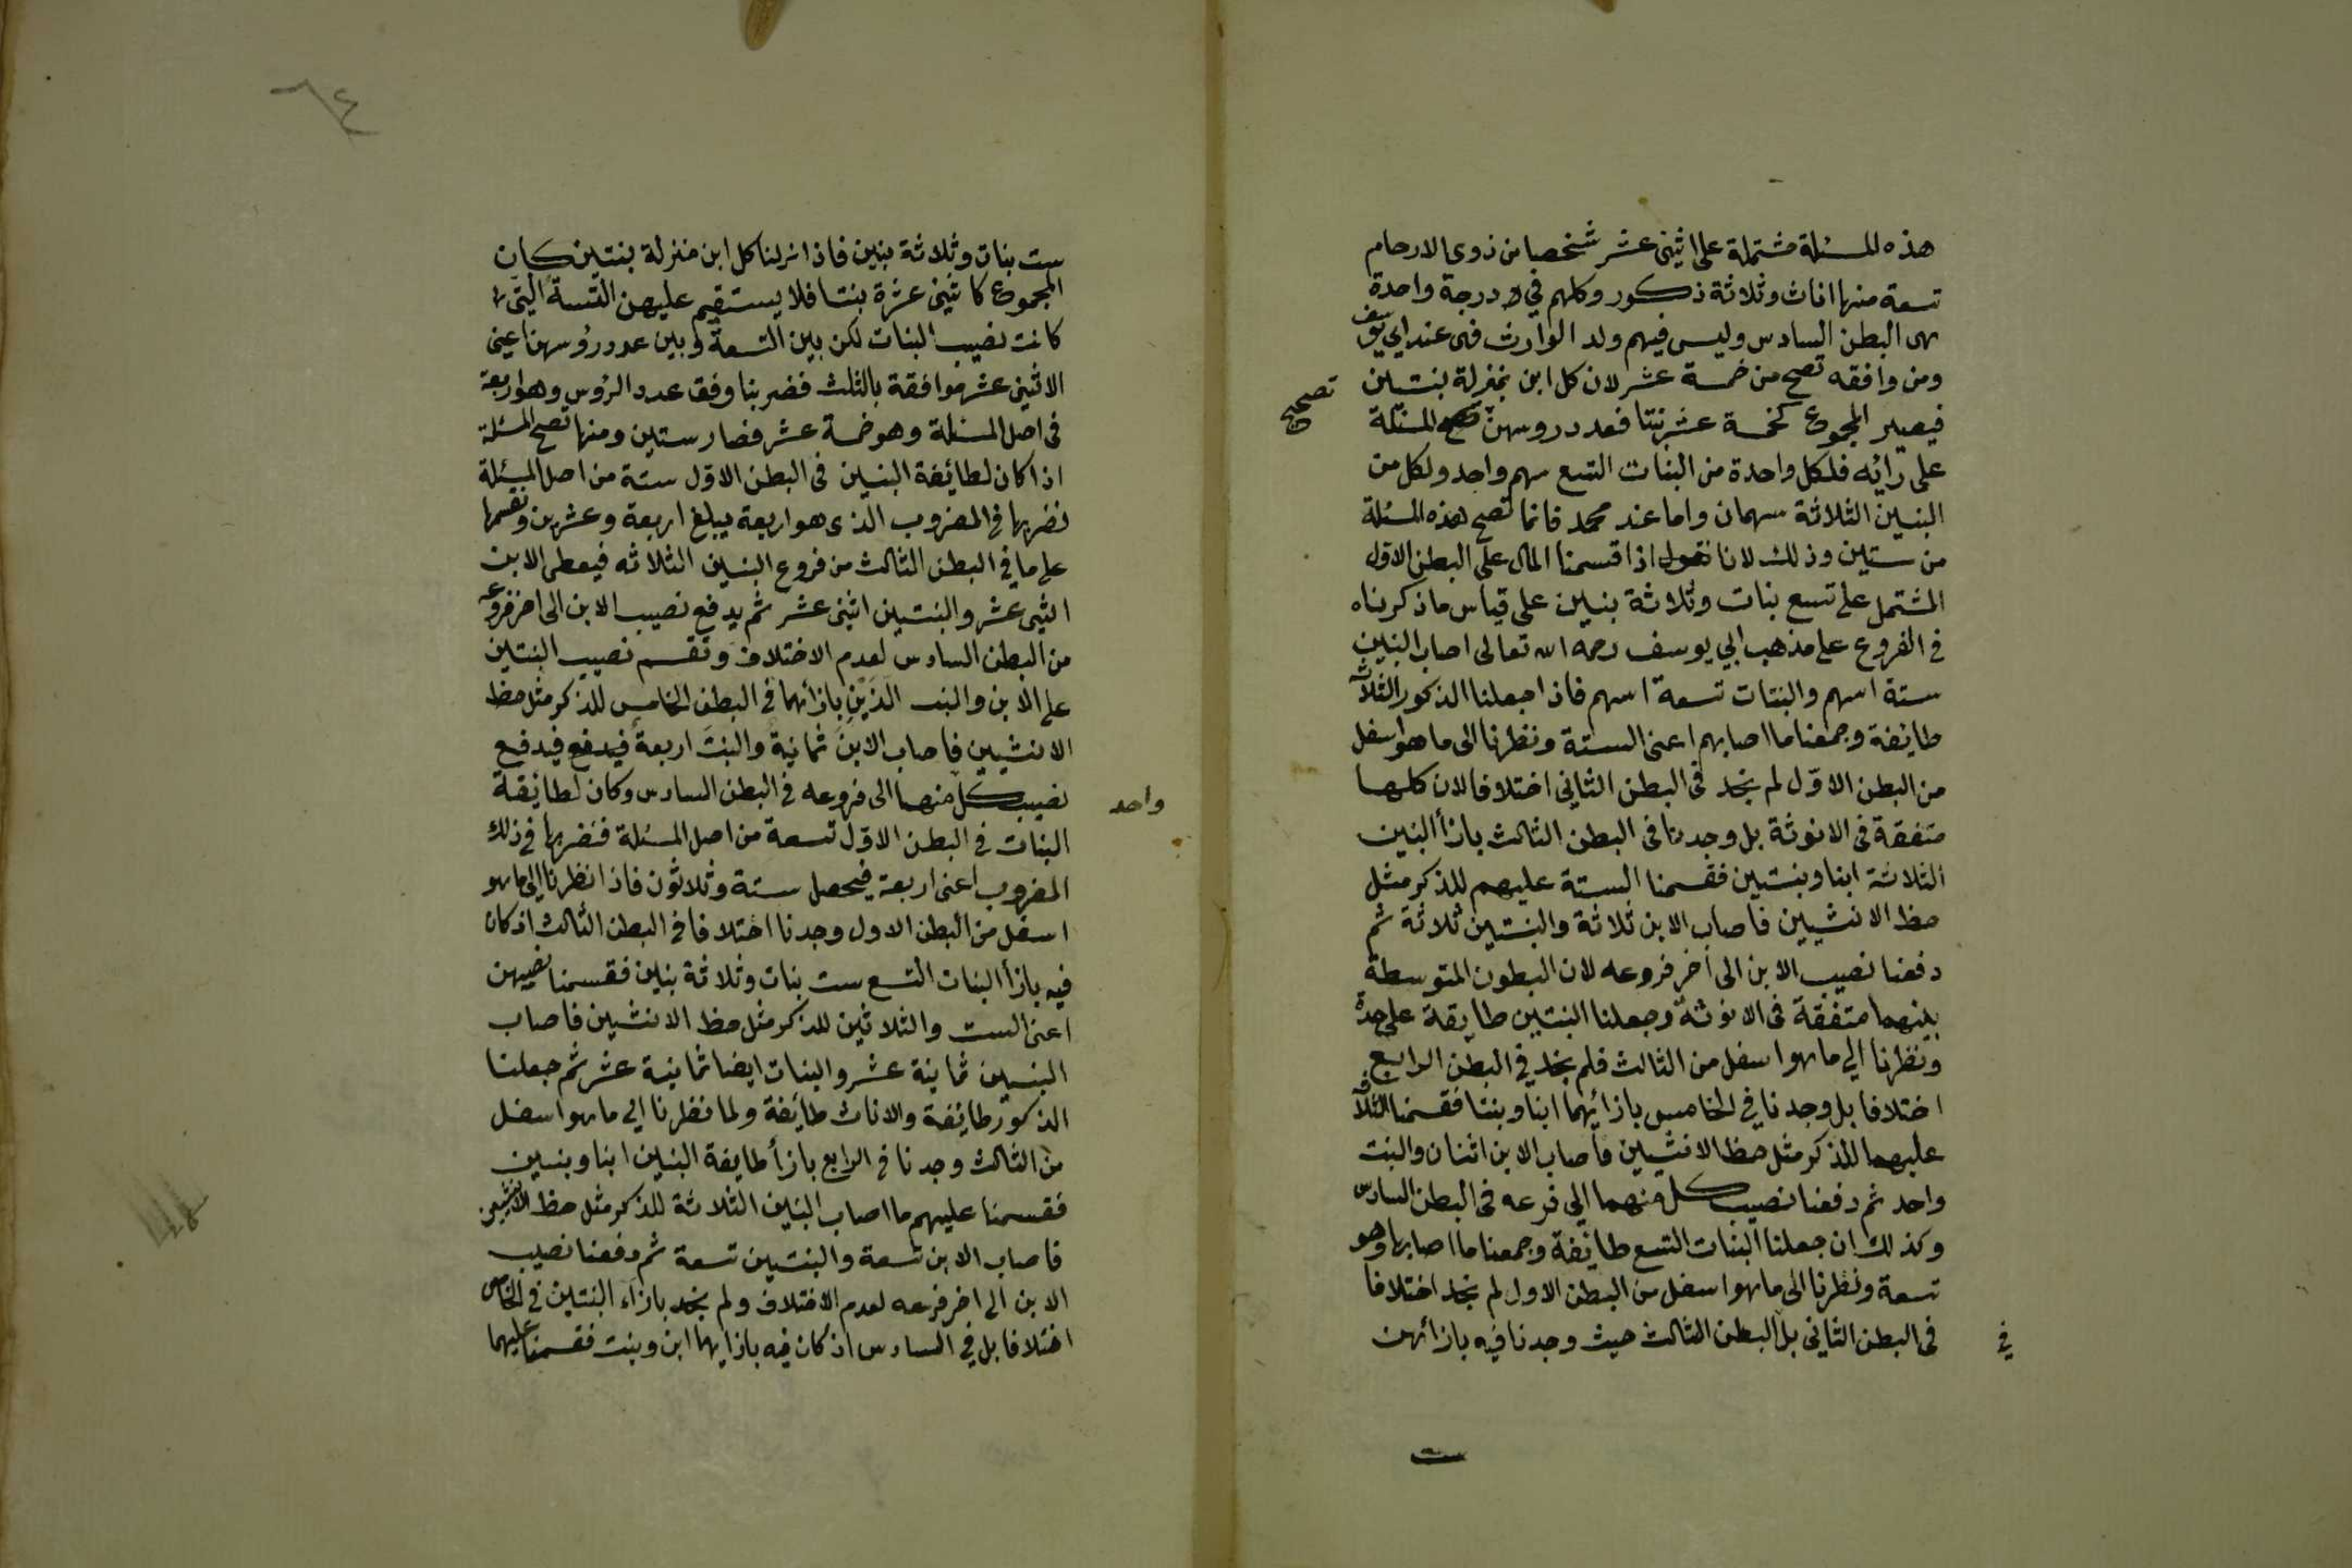 هذه المسئلة مشتملة على اثنى عشر شخصا من ذوى الارحام
تسعة منها اناث وثلاثة ذكور وكلهم في درجة واحدة
هى البطن السادس وليس فيهم ولد الوارث فهى عند ابي يوسف
ومن وافقه تصح من خمسة عشر لان كل ابن بمنزلة بنتين
تصحيح
فيصير المجموع كخمسة عشر بنتا فعدد روسهن المسئلة
على رائه فلكل واحدة من البنات التسع سهم واحد ولكل من
البنين الثلاثة سهمان واما عند محمد فانما تصح هذه المسئلة
من ستين وذلك لانا نقول اذا قسمنا المال على البطن الاول
المشتمل على تسع بنات وثلاثة بنين على قياس ما ذكرناه
في الفروع على مذهب ابي يوسف رحمه الله تعالى اصاب البنين
ستة اسهم والبنات تسعة اسهم فاذا جعلنا الذكور الثلاثة
طايفة وجمعنا ما اصابهم اعنى الستة ونظرنا الى ما هو اسفل
من البطن الاوّل لم نجد فى البطن الثانى اختلافا لان كلها
متفقة فى الانوثة بل وجدنا فى البطن الثالث بازأ البنين
الثلاثة ابنا وبنتين فقسمنا الستة عليهم للذكر مثل
حظ الانثيين فاصاب الابن ثلاثة والبنتين ثلاثة ثم
دفعنا نصيب الابن الى اخر فروعه لان البطون المتوسطة
بينهما متفقة فى الانوثة وجعلنا البنتين طايفة على حدة
ونظرنا الي ما هو اسفل من الثالث فلم نجد في البطن الرابع
اختلافا بل وجدنا في الخامس بازائهما ابنا وبنتا فقسمنا الثلاثة
عليهما للذكر مثل حظ الانثيين فاصاب الابن اثنان والبنت
واحد ثم دفعنا نصيب كل منهما الى فرعه فى البطن السادس
وكذلك ان جعلنا البنات التسع طائفة وجمعنا ما اصابها وهو
تسعة ونظرنا الى ما هو اسفل من البطن الاول لم نجد اختلافا
فى البطن الثانى بل البطن الثالث حيث وجدنا فيه بازائهن
في
ست
٦٤
ست بنات وثلاثة بنين فاذا نزلنا كل ابن منزلة بنتين كان
المجموع كاثنى عشرة بنتا فلا يستقيم عليهن التسعة التى
كانت نصيب البنات لكن بين التسعة وبين عدد رؤسهن اعنى
الاثنى عشر موافقة بالثلث فضربنا وفق عدد الرؤس وهو اربعة
فى اصل المسئلة وهو خمسة عشر فصار ستين ومنها تصح المسئلة
اذا كان لطائفة البنين فى البطن الاوّل ستة من اصل المسئلة
نضربها في المضروب الذى هو اربعة يبلغ اربعة وعشرين ونقسمها
على ما في البطن الثالث من فروع البنين الثلاثه فيعطى الابن
اثنى عشر والبنتين اثنى عشر ثم يدفع نصيب الابن الى اخر فروعه
من البطن السادس لعدم الاختلاف ونقسم نصيب البنتين
على الابن والبنت الذَيْنِ بازائهما فى البطن الخامس للذكر مثل حظ
الانثيين فاصاب الابن ثمانية والبنت اربعة فيدفع فيدفع
نصيب كل منهما الى فروعه فى البطن السادس وكان لطائفة
واحد
البنات في البطن الاوّل تسعة من اصل المسئلة فنضربها فى ذلك
المضروب اعنى اربعة فيحصل ستة وثلاثون فاذا نظرنا الى ما هو
اسفل من البطن الاول وجدنا اختلافا فى البطن الثالث اذ كان
فيه بازأ البنات التسع ست بنات وثلاثة بنين فقسمنا نصيبهن
اعنى الست والثلاثين للذكر مثل حظ الانثيين فاصاب
البنين ثمانية عشر والبنات ايضا ثمانية عشر ثم جعلنا
الذكور طايفة والاناث طائفة ولما نظرنا الى ما هو اسفل
من الثالث وجدنا فى الرابع بازأ طايفة البنين ابنا وبنتين
فقسمنا عليهم ما اصاب البنين الثلاثة للذكر مثل حظ الانثيين
فاصاب الابن تسعة والبنتين تسعة ثم دفعنا نصيب
الابن الى اخر فرعه لعدم الاختلاف ولم نجد بازاء البنتين فى الخامس
اختلافا بل في السادس اذ كان فيه بازايهما ابن وبنت فقسمنا عليهما